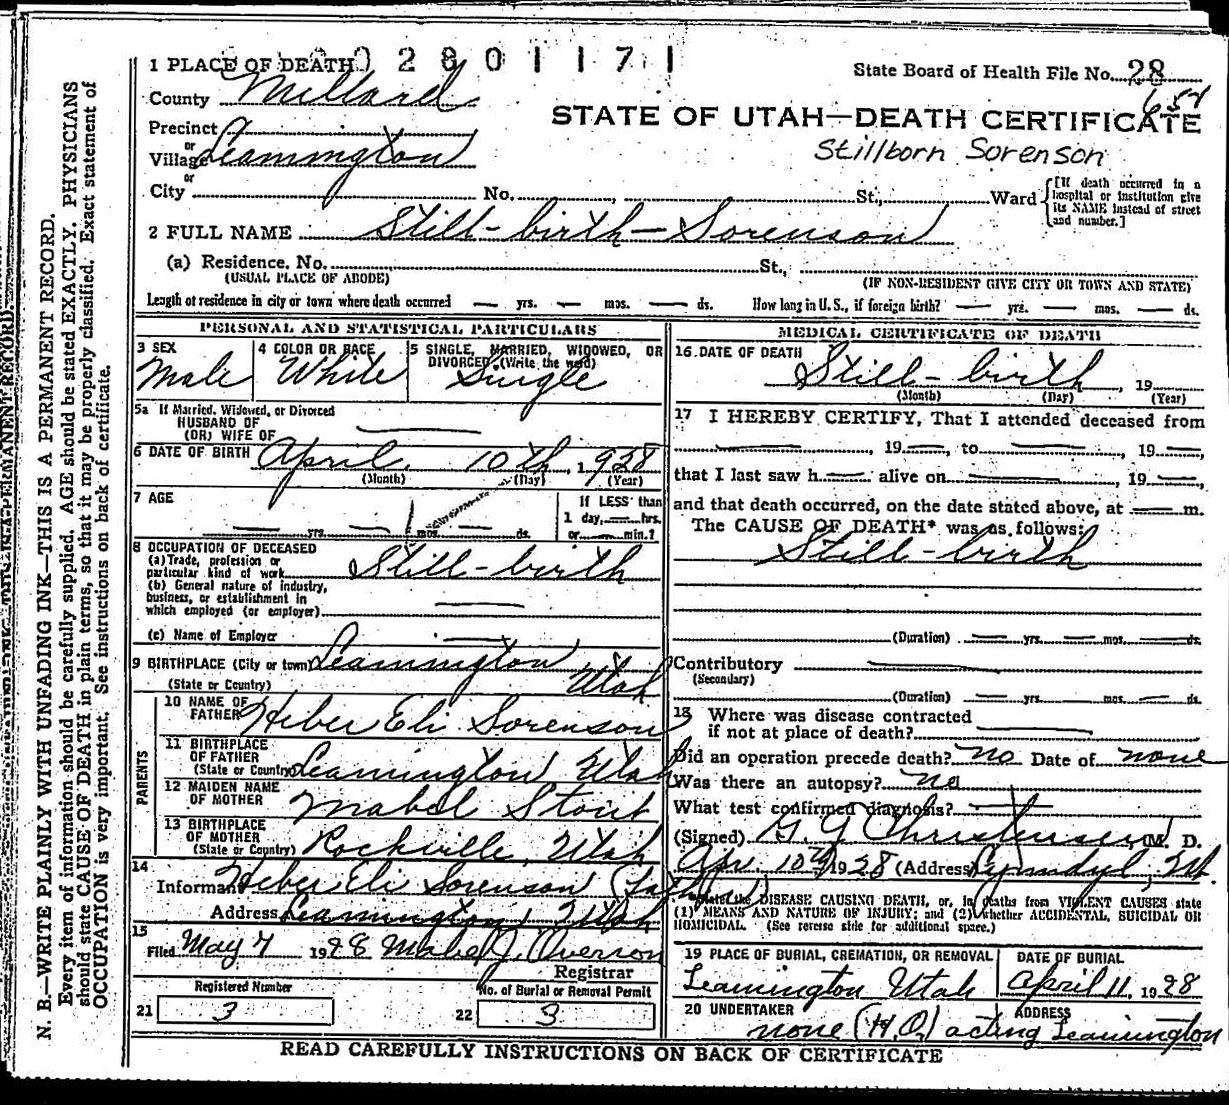 0 2 8 0 1 1 7 1
1 PLACE OF DEATH
State Board of Health File No. 28
654
County Millard
STATE OF UTAH—DEATH CERTIFICATE
Precinct
or
Village Leamington
Stillborn Sorenson
or
City No. , St., Ward
[If death occurred in a hospital or institution give its NAME instead of street and number.]
2 FULL NAME Still-birth-Sorenson
(a) Residence. No. St.,
(USUAL PLACE OF ABODE) (IF NON-RESIDENT GIVE CITY OR TOWN AND STATE)
Length of residence in city or town where death occurred — yrs. — mos. — ds. How long in U.S., if foreign birth? — yrs. — mos. — ds.
PERSONAL AND STATISTICAL PARTICULARS
3 SEX Male
4 COLOR OR RACE White
5 SINGLE, MARRIED, WIDOWED, OR DIVORCED. (Write the word) Single
5a If Married, Widowed, or Divorced
HUSBAND OF
(OR) WIFE OF —
6 DATE OF BIRTH April 10th, 1928
(Month) (Day) (Year)
7 AGE
— yrs. — mos. — ds.
If LESS than
1 day, — hrs.
or — min.?
8 OCCUPATION OF DECEASED
(a) Trade, profession or
particular kind of work Still-birth
(b) General nature of industry,
business, or establishment in
which employed (or employer) —
(c) Name of Employer —
9 BIRTHPLACE (City or town) Leamington
(State or Country) Utah
PARENTS
10 NAME OF FATHER Heber Eli Sorenson
11 BIRTHPLACE OF FATHER (State or Country) Leamington Utah
12 MAIDEN NAME OF MOTHER Mabel Stout
13 BIRTHPLACE OF MOTHER (State or Country) Rockville, Utah
14 Informant Heber Eli Sorenson (father)
Address Leamington, Utah
15 Filed May 7 1928 Mabel J. Overson
Registrar
Registered Number
21 3
No. of Burial or Removal Permit
22 3
MEDICAL CERTIFICATE OF DEATH
16 DATE OF DEATH Still-birth, 19
(Month) (Day) (Year)
17 I HEREBY CERTIFY, That I attended deceased from
—, 19 —, to —, 19 —,
that I last saw h — alive on —, 19 —,
and that death occurred, on the date stated above, at — m.
The CAUSE OF DEATH* was as follows:
Still-birth
(Duration) — yrs. — mos. — ds.
Contributory —
(Secondary)
(Duration) — yrs. — mos. — ds.
18 Where was disease contracted
if not at place of death? —
Did an operation precede death? no Date of none
Was there an autopsy? no
What test confirmed diagnosis? —
(Signed) G. G. Christensen M. D.
Apr. 10th 1928 (Address Lynndyl, Ut.
*State the DISEASE CAUSING DEATH, or, in deaths from VIOLENT CAUSES state
(1) MEANS AND NATURE OF INJURY; and (2) whether ACCIDENTAL, SUICIDAL OR
HOMICIDAL. (See reverse side for additional space.)
19 PLACE OF BURIAL, CREMATION, OR REMOVAL
Leamington Utah
DATE OF BURIAL
April 11, 1928
20 UNDERTAKER ADDRESS
none (H.O.) acting Leamington
READ CAREFULLY INSTRUCTIONS ON BACK OF CERTIFICATE
N. B.—WRITE PLAINLY WITH UNFADING INK—THIS IS A PERMANENT RECORD.
Every item of information should be carefully supplied. AGE should be stated EXACTLY. PHYSICIANS
should state CAUSE OF DEATH in plain terms, so that it may be properly classified. Exact statement of
OCCUPATION is very important. See instructions on back of certificate.